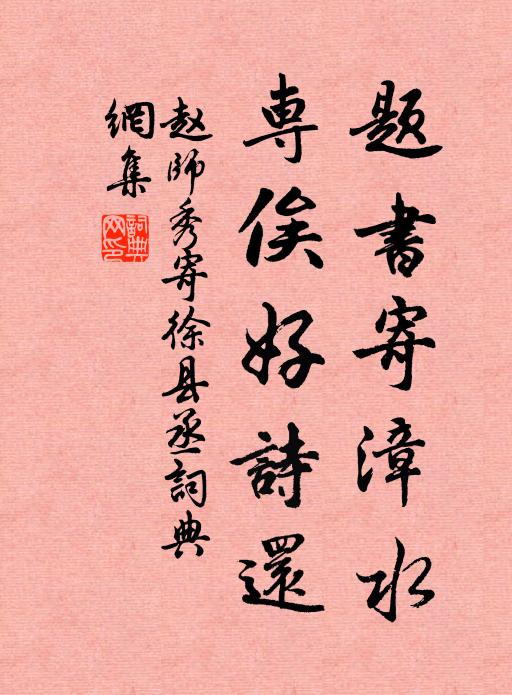 题书寄漳水
専俟好詩還
赵師秀寄徐县丞詞典
網集
詞典网印